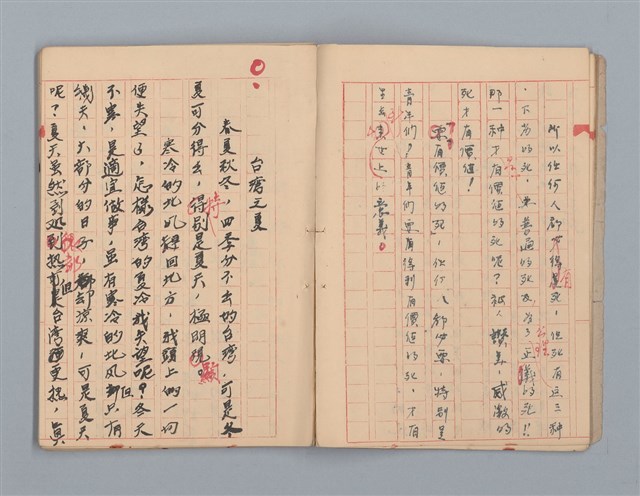 所以任何人都才得着死，但死有這三种
，不名的死，來普通的死，及為了正義的死！！
那一种才有價值的死呢？被人讚美，感激的
死才有價值！
要有價值的死，任何人都必要，特別是
青年們！青年們要有得到有價值的死，才有
生存世上的意義！
台灣之夏
春夏秋冬，四季分不出的台灣，可是冬
夏可分得出，特別是夏天，極明顯。
寒冷的北風歸回北方，我頭上的一切
便失望了，怎樣台灣的夏冷我失望呢？冬天
不寒，是適宜做事，虽有寒冷的北風但只有
幾天，大部分的日子，都却涼爽，可是夏天
呢？夏天虽然到処都很熱但是台湾更熱，真